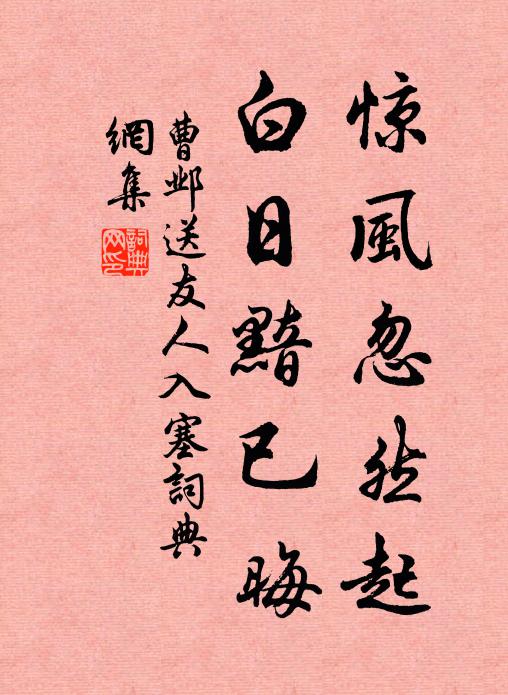 惊風忽然起
白日黯已晦
曹邺送友人入塞詞典
網集
詞典
网印